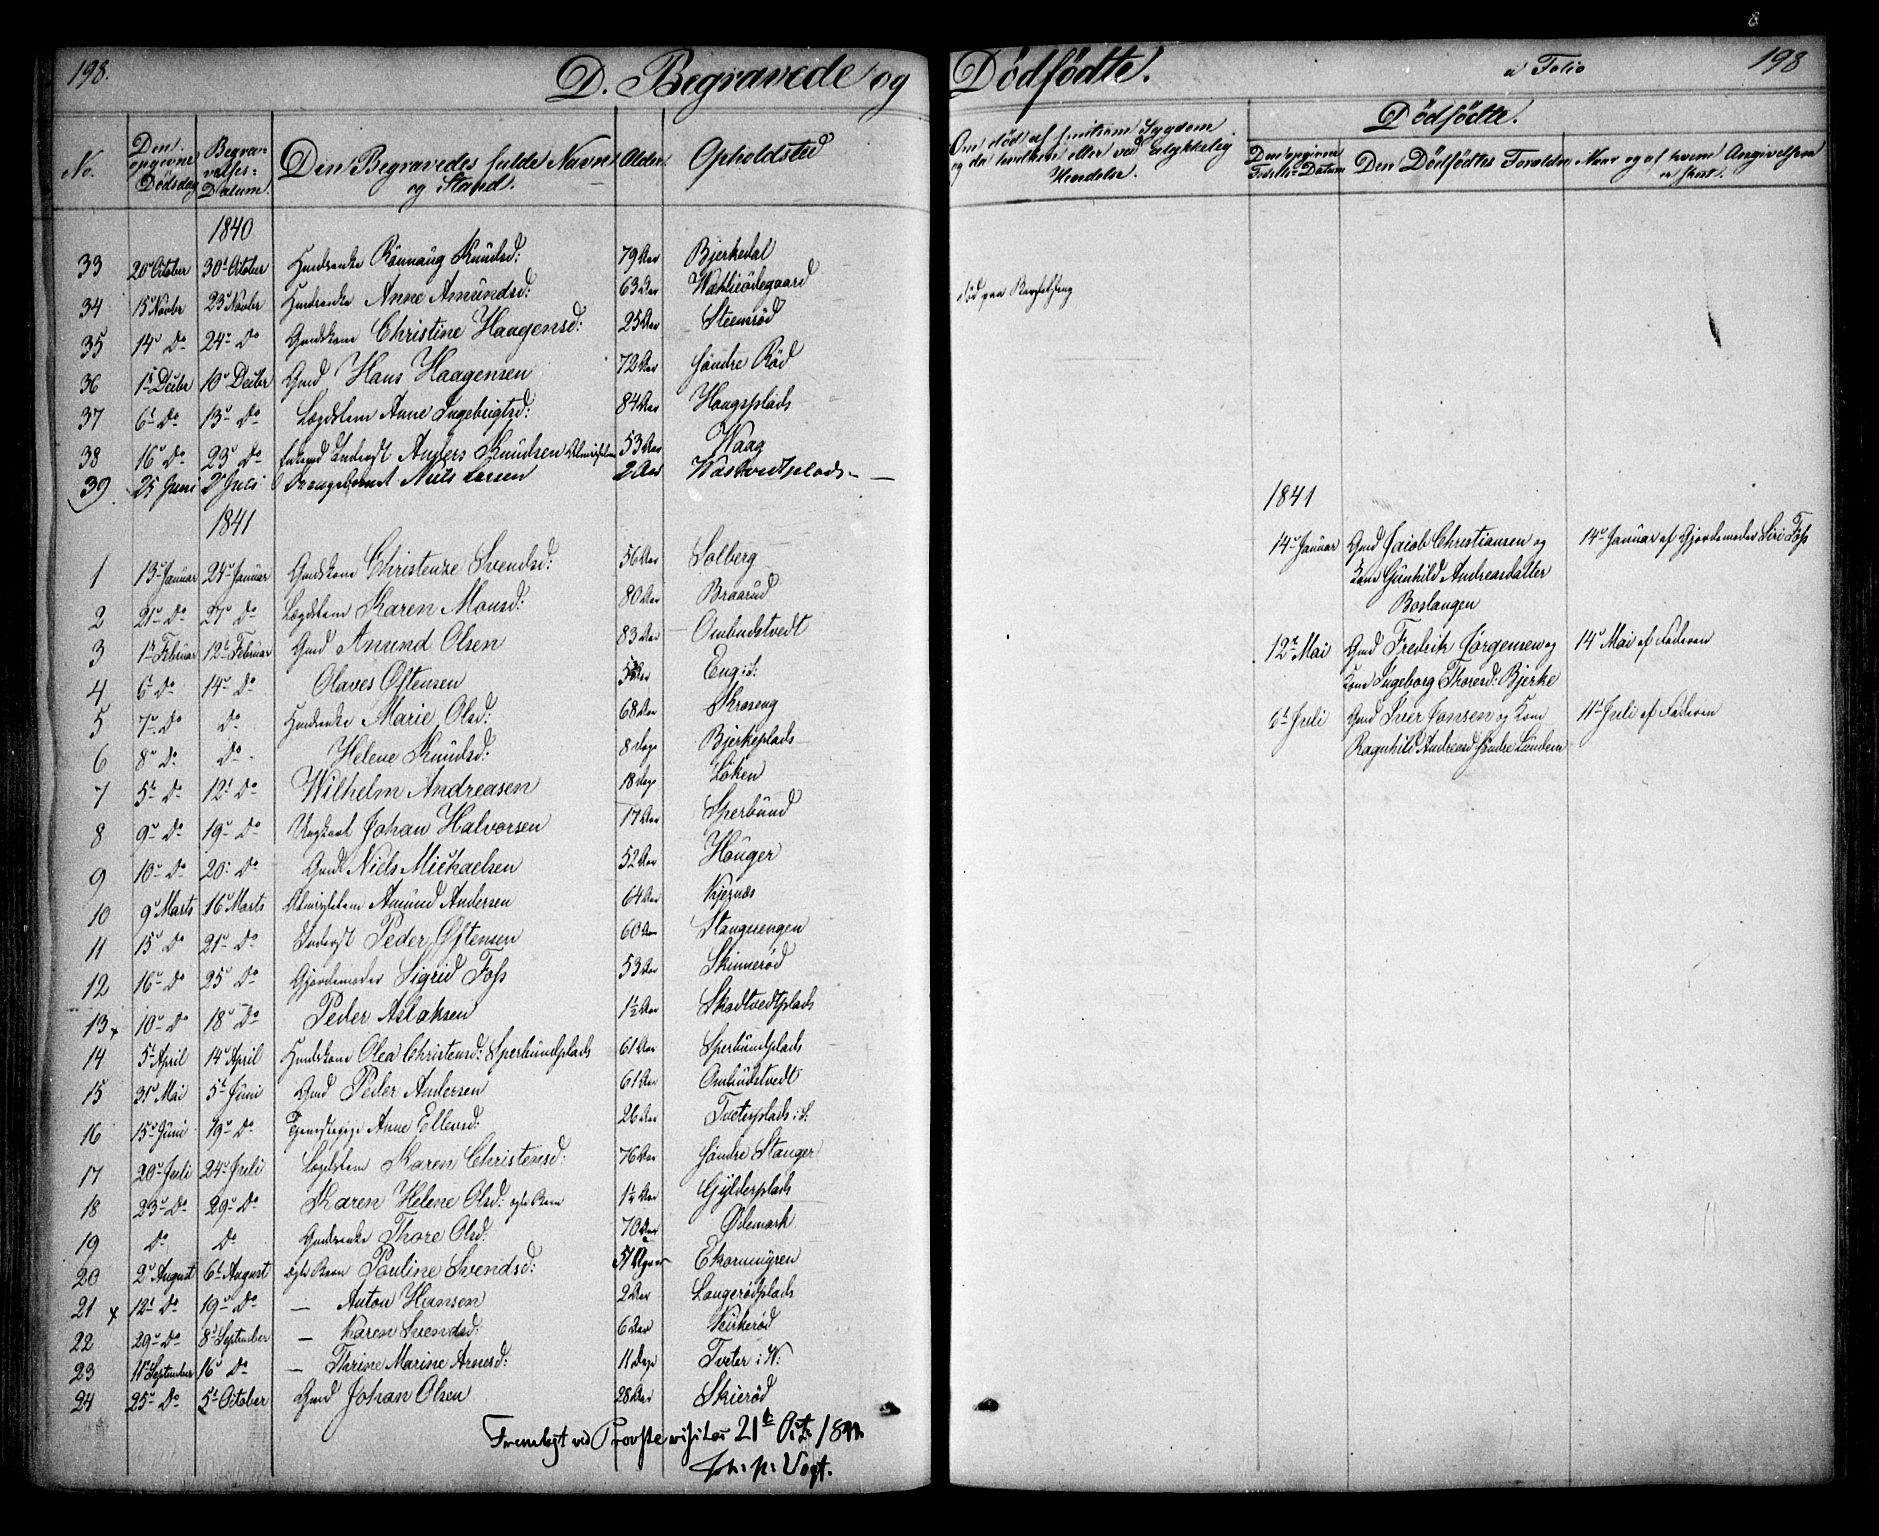 8
198.
D. Begravede og Dödfödte.
a Folio
198
No.
Den opgivne Dödsdag
Begravelses-Datum.
Den Begravedes fulde Navn og Stand.
Alder.
Opholdsted
Om död af smitsom Sygdom og da hvilken eller ved ulykkelig Hendelse.
Dödfödte.
Den opgivne Födsels-Datum
Den Dödfödtes Forældre
Naar og af hvem Angivelsen er skeet.
1840
33 20de October 30te October Huusenke Rönnaug Knudsd: 79 Aar Bjerkedal
34 15de Novbr 23de Novbr Huusenke Anne Amundsd: 63 Aar död paa Barselseng
35 14de Do 24de Do Gmdskone Christine Haagensd: 25 Aar Steensröd
36 1te Decbr 10de Decbr Gmd Hans Haagensen 72 Aar Söndre Röd
37 6te Do 13de Do Lægdslem Anne Ingebrigtsd: 84 Aar Haugsplads
38 16de Do 23de Do Anders Knudsen Almisselem 53 Aar Waag
39 25 Juni 2 Juli Drengebarnet Niels Larsen 2 Aar
1841
1 13de Januar 21de Januar Gmdskone Christense Svendsd: 56 Aar Solberg
2 21de Do 27de Do Lægdslem Karen Monsd: 80 Aar Braarud
3 1te Februar 12te Februar Gmd Amund Olsen 83 Aar Ombudstvedt
4 6te Do 14de Do Olaves Oftensen Aar Engit:
5 7de Do Do Huusenke Marie Olsd: 68 Aar Kroseng
6 8de Do Do Helene Knudsd: 8 dage Bjerkeplads
7 5te Do 12te Do Wilhelm Andreasen 18 dage Löken
8 9de Do 19de Do Ungkarl Johan Halvorsen 17 Aar Sperbund
9 10de Do 20: Do Gmd Niels Michaelsen 52 Aar Houger
10 9de Marts 16de Marts Almisselem Amund Andersen 64 Aar Kjernæs
11 15de Do 21de Do Inderst Peder Oftensen 60 Aar Stangsengen
12 16de Do 25de Do Gjordemoder Sigrid Foss 53 Aar Skinneröd
13 x 10de Do 18de Do Peder Aslaksen 1½ Aar Skadtvedtplads
14 5te April 14de April Huuskone Olea Christensd: Sperbundplads 61 Aar Sperbundplads
15 31de Mai 5te Juni Gmd Peder Andersen 61 Aar Ombudstvedt
16 15de Juni 19de Do Tjenestepige Anne Ellensd: 26 Aar Tveterplads i S:
17 20de Juli 24de Juli Lægdslem Karen Christensd: 76 Aar Söndre Stanger
18 23de Do 29de Do Karen Helene Olsd: ægte Barn Aar Gylderplads
19 Do Do Gmdsenke Thore Olsd: 70 Aar Ödemark
20 2de August 6te August ægte Barn Pauline Svendsd: Ekornmyren
21 x 12te Do 19de Do — Anton Hansen 2 Aar Langerödplads
22 29de Do 8de September — Karen Svendsd: 6 Aar Kirkeröd
23 11te September 16de Do — Thrine Marine Arnesd: 11 Dage Tveter i W:
24 25de Do 5te October Gmd Johan Olsen 28 Aar Skieröd
Fremlagt ved Provstevisitas 21de Oct
Vogt.
1841
14de Januar Gmd Jacob Christiansen og 14de Januar af Gjordemoder Siri Foss
Kone Gunhild Andreasdatter
Boslangen
12te Mai Gmd Fredrik Jörgensen og 14de Mai af Faderen
Kone Ingeborg Thoresd: Bjerke
6te Juli Gmd Iver Jonsen og Kone 11te Juli af Faderen
Ragnhild Andreasd Söndre Lundem